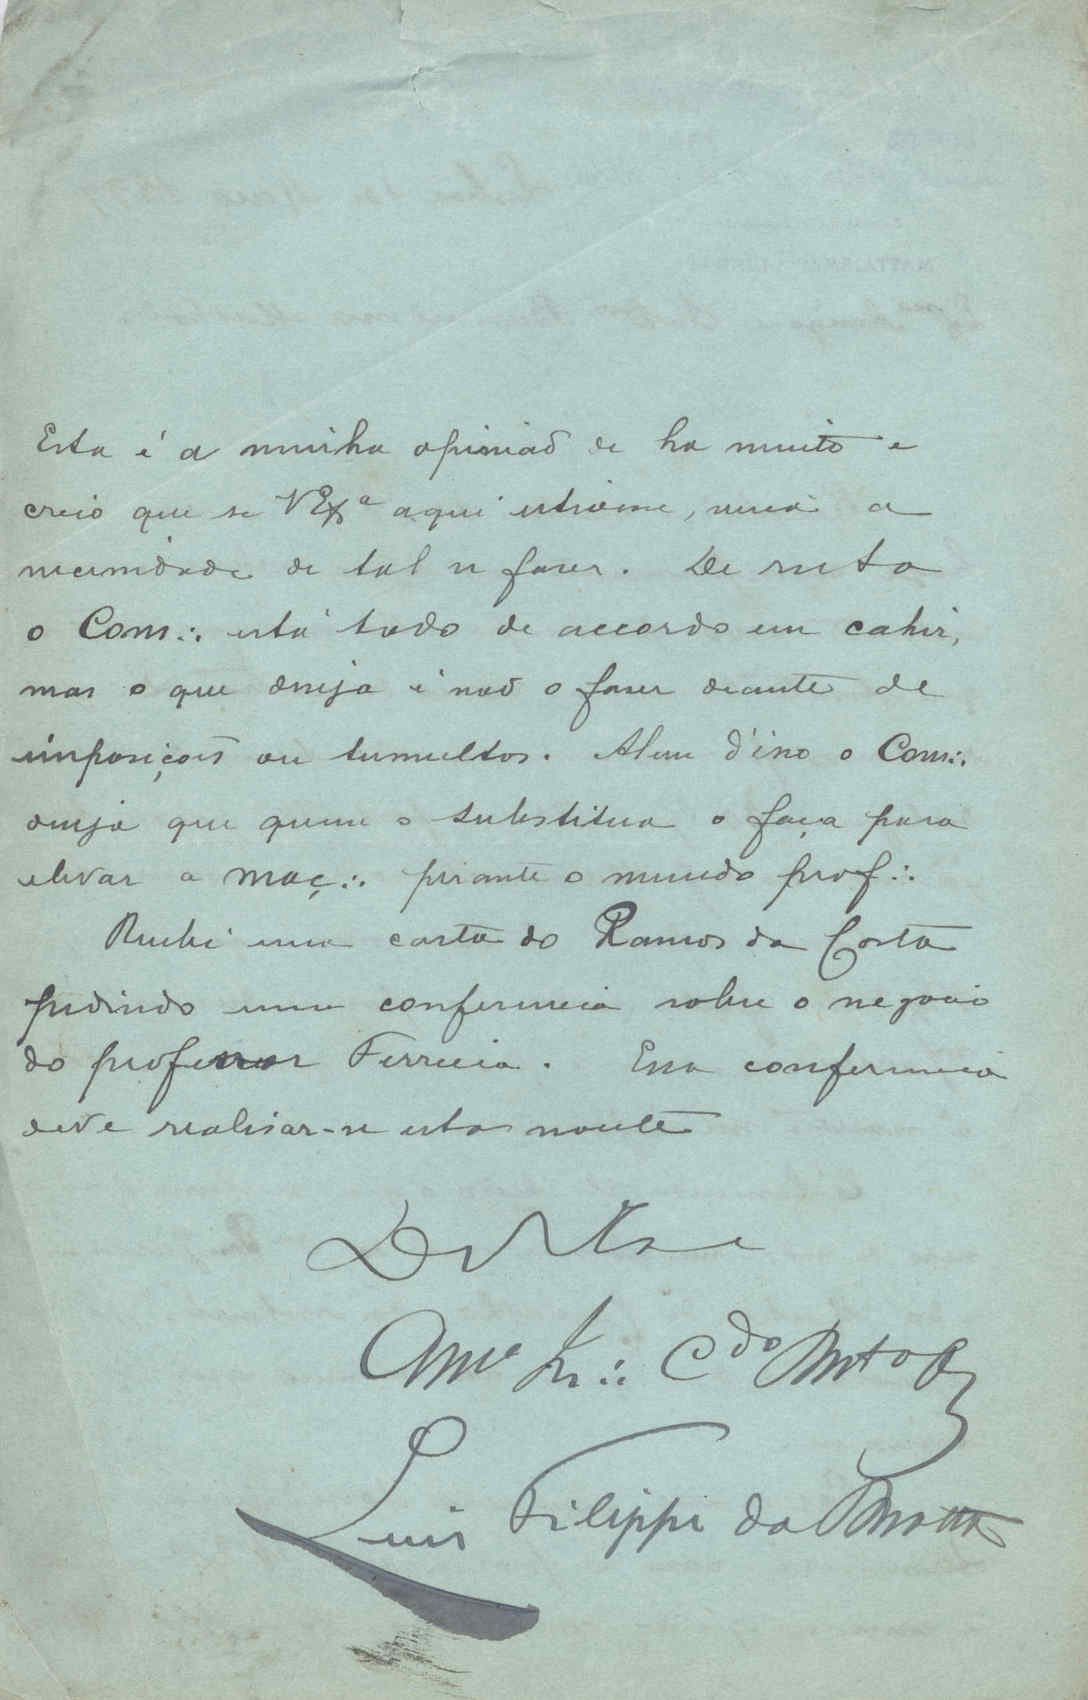 Esta é a minha opinião de ha muito e
creio que se VExª aqui estivesse, veria a
necessidade de tal se fazer. De resto
o Cons∴ está todo de accordo em cahir,
mas o que deseja é não o fazer deante de
imposições ou tumultos. Alem d'isso o Cons∴
deseja que quem o substitua o faça para
elevar a maç∴ perante o mundo prof∴
Recebi uma carta do Ramos da Costa
pedindo uma conferencia sobre o negocio
do professor Ferreira. Essa conferencia
deve realisar-se esta noute
De VExª
Amº Ir∴ Cdo Mto Obg
Luis Filippe da Matta